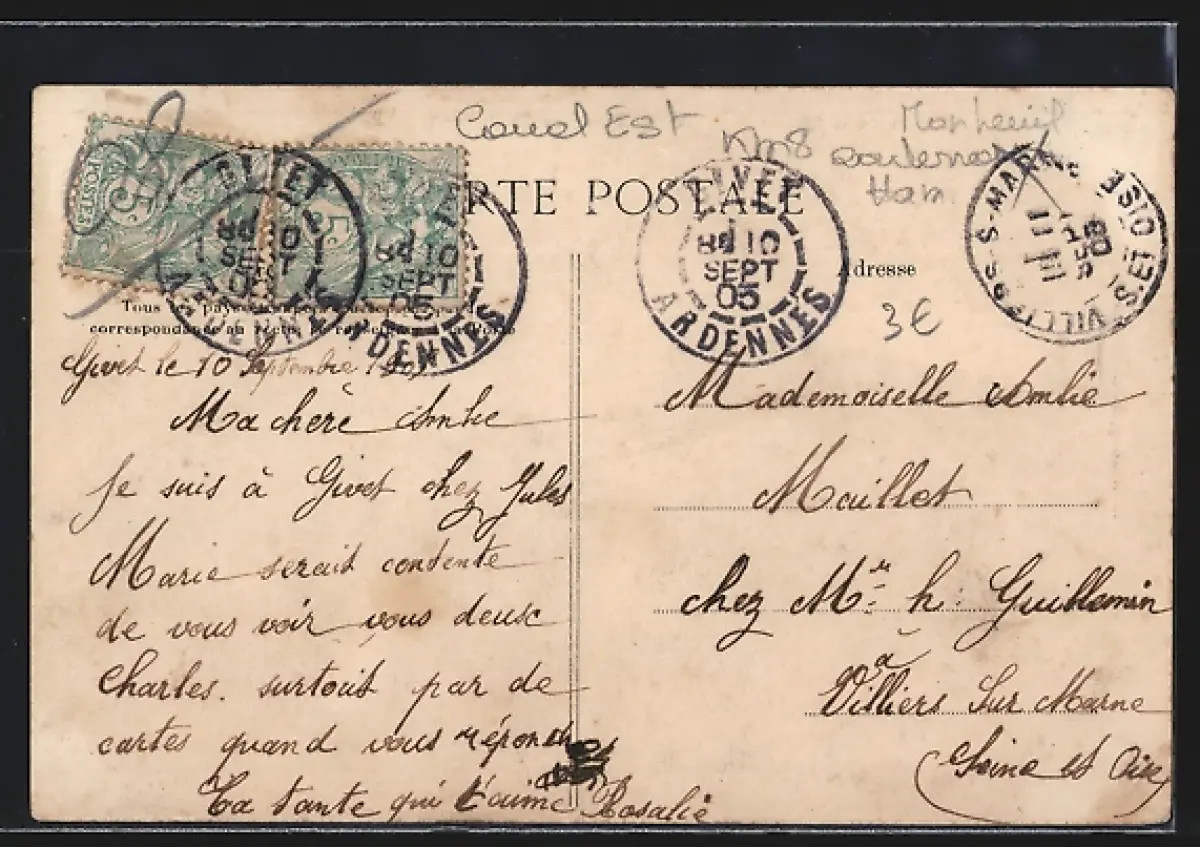 Canal Est
Km8
Montereuil
Ham
CARTE POSTALE
POSTES
5
5
GIVET
8H 10
SEPT
05
ARDENNES
GIVET
8H 10
SEPT
05
ARDENNES
VILLIERS-S-MARNE
S. ET OISE
11
SEPT
05
Adresse
3€
Tous les pays
correspondance au recto
Givet le 10 Septembre
Ma chère Amlie
Je suis à Givet chez Jules
Marie serait condente
de vous voir vous deux
Charles. surtout par de
cartes quand vous
Ta tante qui t'aime Rosalie
Mademoiselle Amlie
Maillet
chez Mr h. Guillemin
à
Villiers Sur Marne
(Seine et Oise)